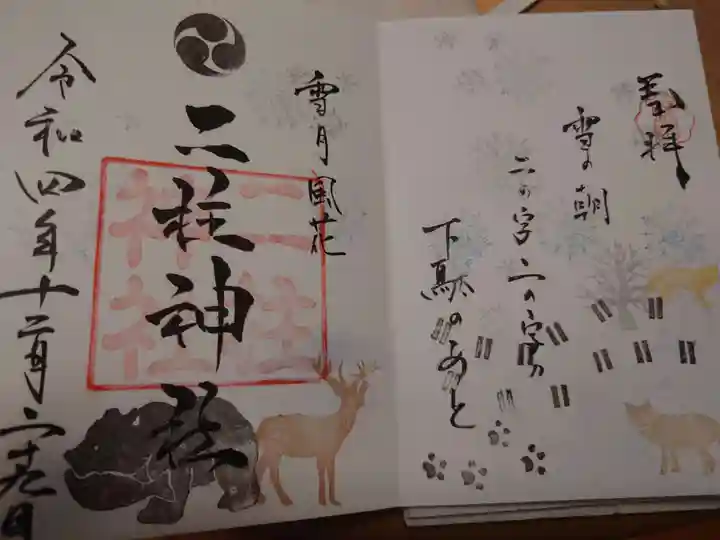 奉拝
雪の朝
二の字二の字の
下駄のあと
雪月風花
二柱神社
二柱神社
令和四年十二月二十九日